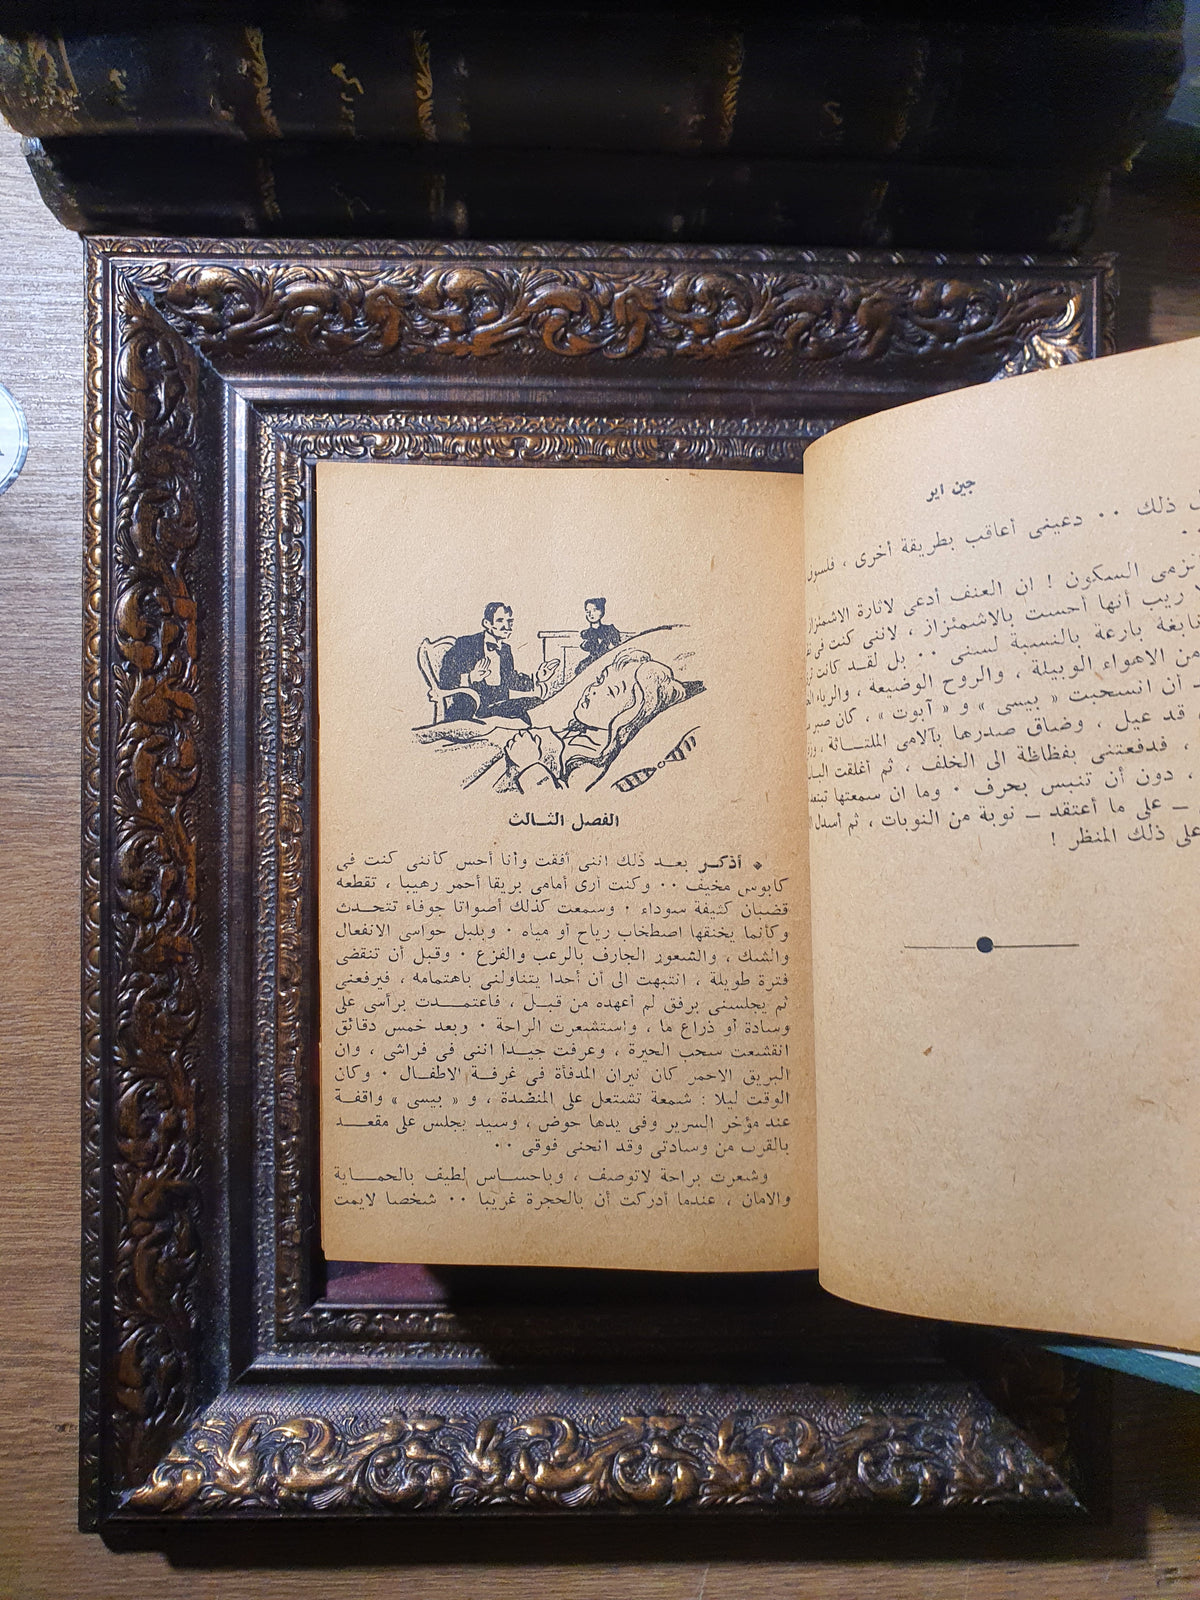 جين اير
ذلك ٠٠ دعينى أعاقب بطريقة أخرى ، فلسوف
٠٠
السكون ! ان العنف أدعى لاثارة الاشمئزاز
ريب أنها أحست بالاشمئزاز ، لاننى كنت فى
نابغة بارعة بالنسبة لسنى ٠٠ بل لقد كانت
من الاهواء الوبيلة ، والروح الوضيعة ، والرياء
ـ أن انسحبت « بيسى » و « آبوت » ، كان
قد عيل ، وضاق صدرها بآلامى الملتـــاثة ،
، فدفعتنى بفظاظة الى الخلف ، ثم أغلقت
، دون أن تنبس بحرف ٠ وما ان سمعتها تبتعد
ـ على ما أعتقد ـ نوبة من النوبات ، ثم أسدل
على ذلك المنظر !
الفصل الثـــالث
• أذكــر بعــد ذلك اننى أفقت وأنا أحس كأننى كنت فى
كابوس مخيف ٠٠ وكنت أرى أمامى بريقا أحمر رهيبا ، تقطعه
قضبان كثيفة سوداء ٠ وسمعت كذلك أصواتا جوفاء تتحــدث
وكأنما يخنقها اصطخاب رياح أو مياه ٠ وبلبل حواسى الانفعال
والشك ، والشعور الجارف بالرعب والفزع ٠ وقبل أن تنقضى
فترة طويلة ، انتبهت الى أن أحدا يتناولنى باهتمامه ، فيرفعنى
ثم يجلسنى برفق لم أعهده من قبــل ، فاعتمــدت برأسى على
وسادة أو ذراع ما ، واستشعرت الراحة ٠ وبعد خمس دقائق
انقشعت سحب الحيرة ، وعرفت جيــدا اننى فى فراشى ، وان
البريق الاحمر كان نيران المدفأة فى غرفــة الاطفــال ٠ وكان
الوقت ليلا : شمعة تشتعل على المنضدة ، و « بيسى » واقفــة
عند مؤخر السرير وفى يدها حوض ، وسيد يجلس على مقعــد
بالقرب من وسادتى وقد انحنى فوقى ٠٠
وشعرت براحة لاتوصف ، وباحســاس لطيف بالحمـــاية
والامان ، عندما أدركت أن بالحجرة غريبا ٠٠ شخصا لايمت